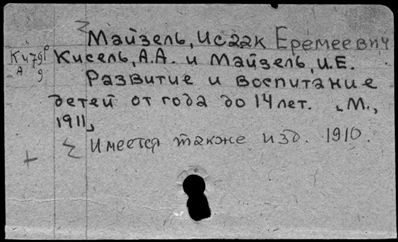 Майзель, Исаак Еремеевич
Кисель, А.А. и Майзель, И.Е.
Развитие и воспитание
детей от года до 14 лет. М.,
1911.
Имеется также изд. 1910.